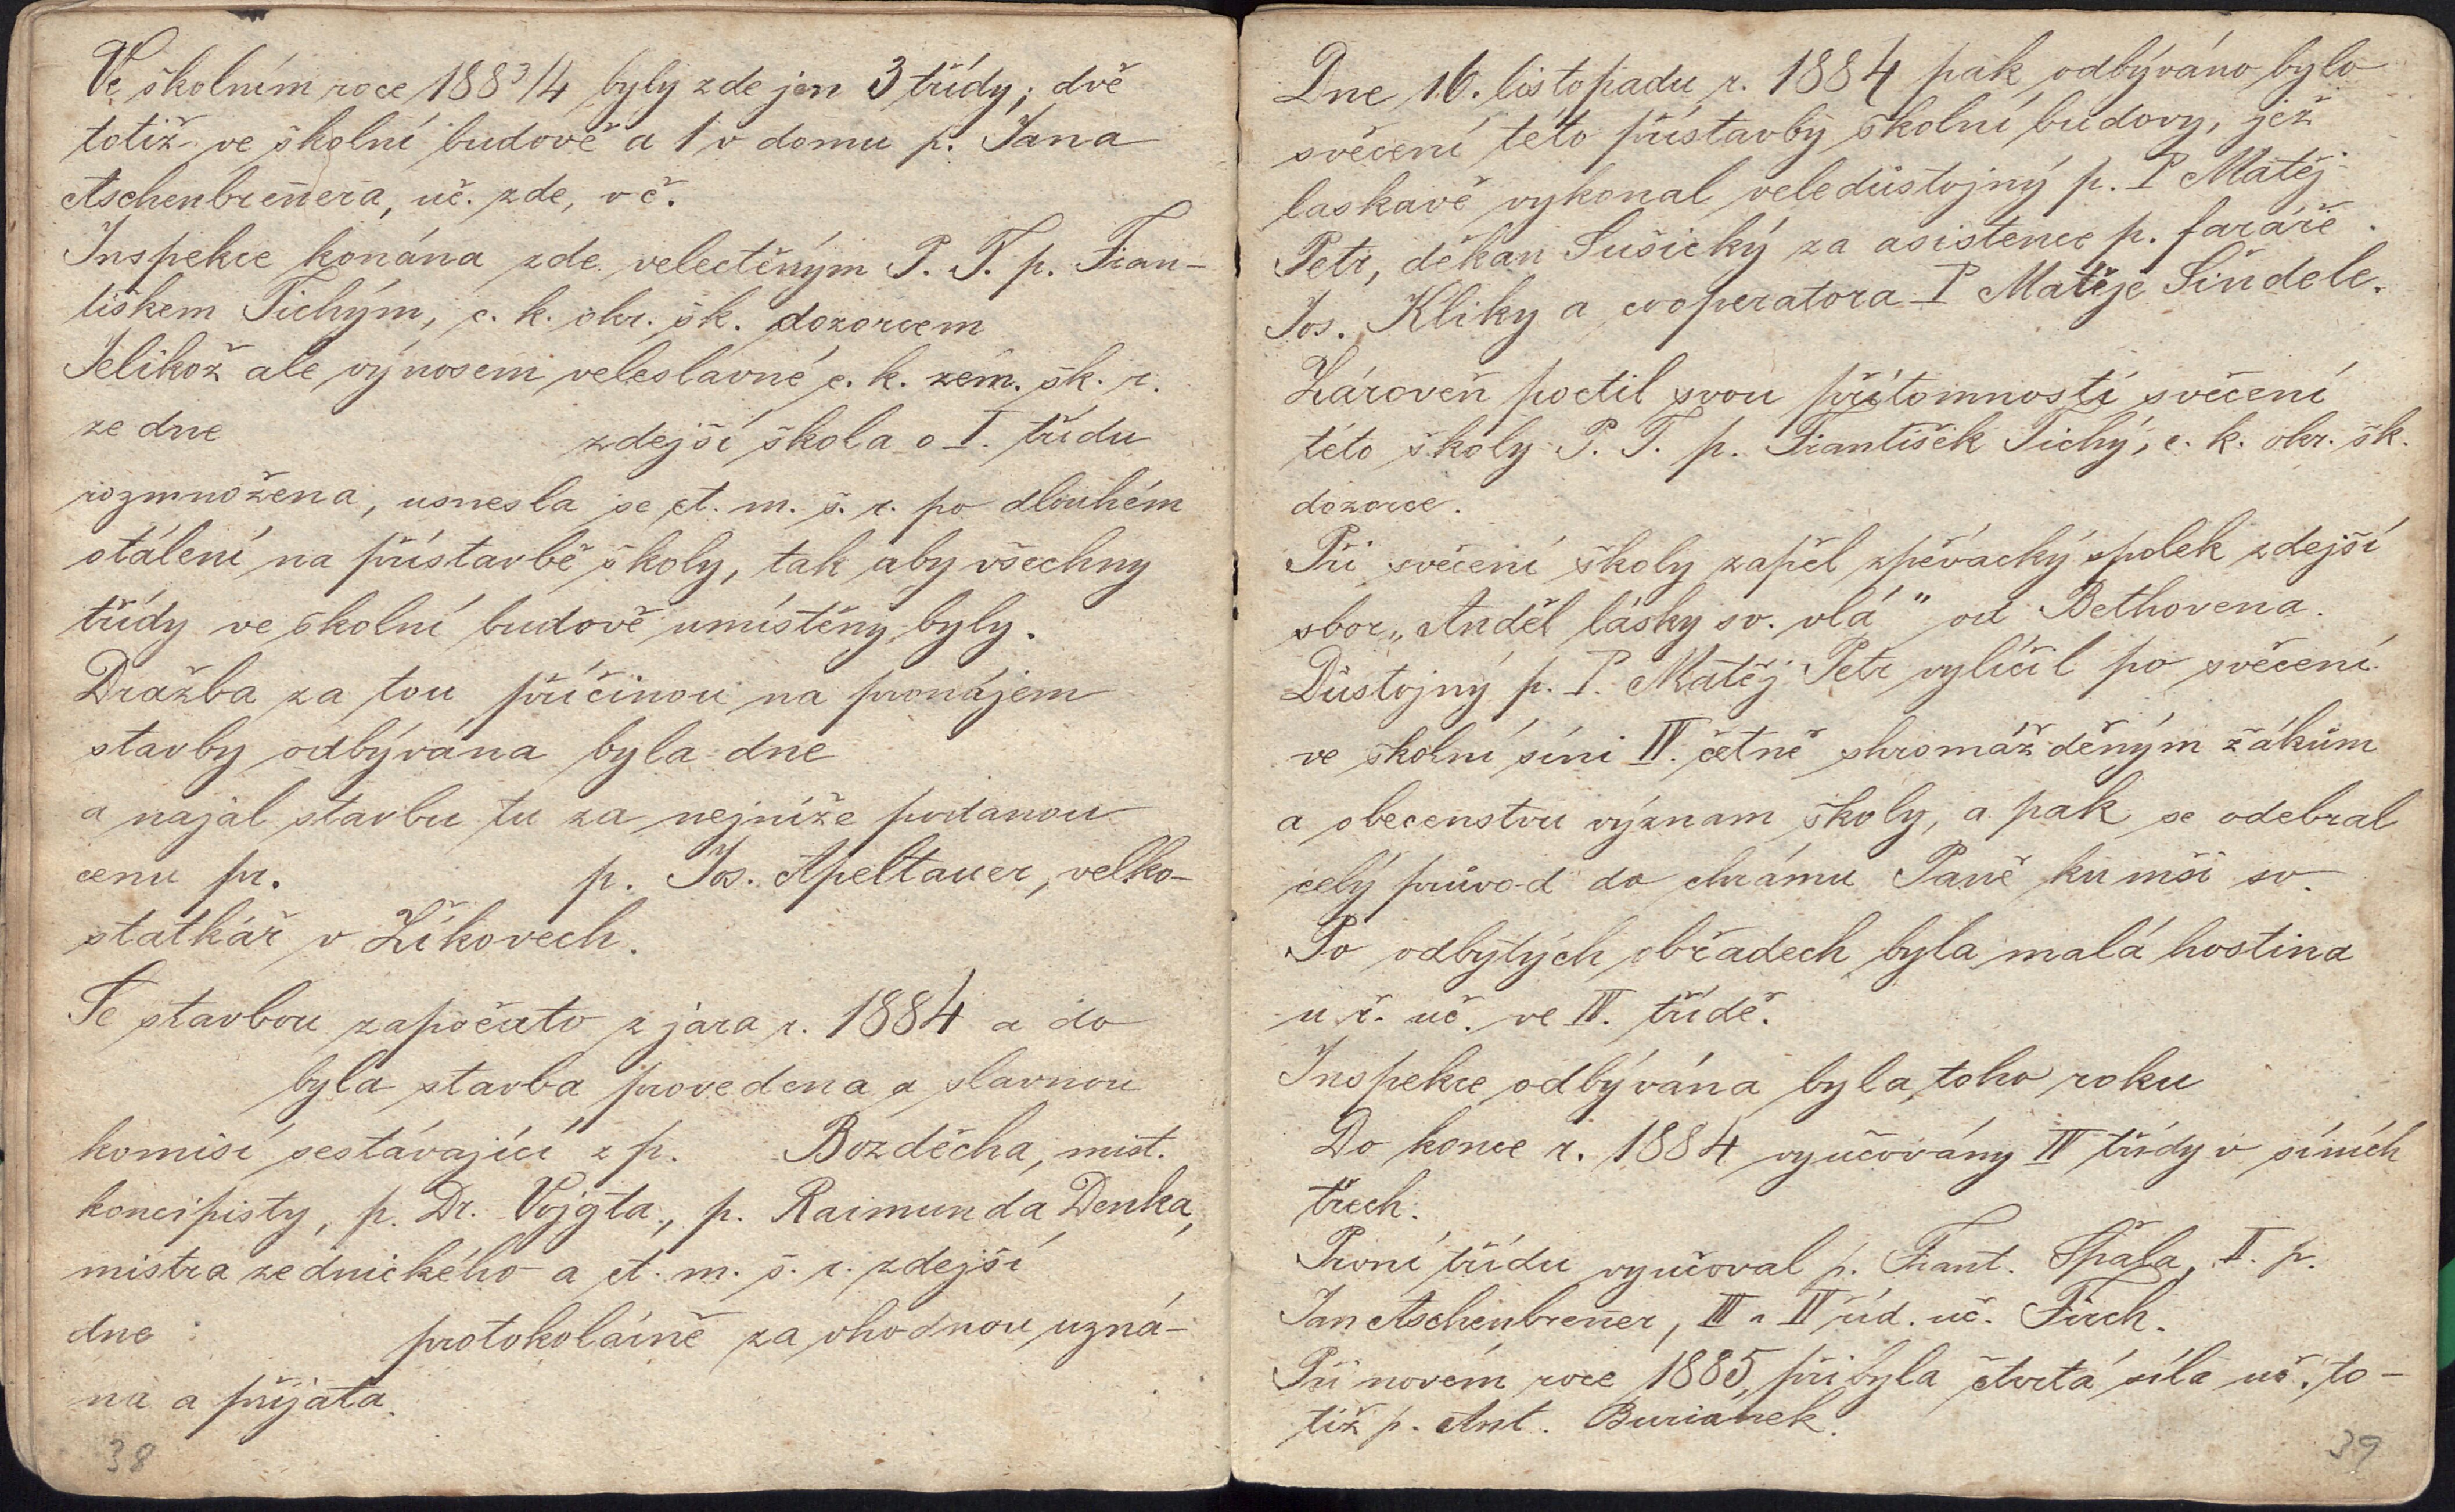 Ve školním roce 1883/4 byly zde jen 3 třídy; dvě
totiž ve školní budově a 1 v domu p. Jana
Aschenbrennera, uč. zde, v č.
Inspekce konána zde velectěným P. T. p. Fran-
tiškem Tichým, c. k. okr. šk. dozorcem
Jelikož ale výnosem veleslavné c. k. zem. šk. r.
ze dne zdejší škola o I. třídu
rozmnožena, usnesla se ct. m. š. r. po dlouhém
otálení na přístavbě školy, tak aby všechny
třídy ve školní budově umístěny byly.
Dražba za tou příčinou na pronájem
stavby odbývána byla dne
a najal stavbu tu za nejníže podanou
cenu pr. p. Jos. Apeltauer, velko-
statkář v Žíkovech.
Se stavbou započato z jara r. 1884 a do
byla stavba provedena a slavnou
komisí sestávající z p. Bozděcha, míst.
koncipisty, p. Dr. Vojgta, p. Raimunda Denka,
mistra zednického a ct. m. š. r. zdejší
dne protokolárně za vhodnou uzná-
na a přijata.
38
Dne 16. listopadu r. 1884 pak odbýváno bylo
svěcení této přístavby školní budovy, jež
laskavě vykonal veledůstojný p. P Matěj
Petr, děkan Sušický za asistence p. faráře
Jos. Kliky a cooperatora P Matěje Šindele.
Zároveň poctil svou přítomností svěcení
této školy P. T. p. František Tichý, c. k. okr. šk.
dozorce.
Při svěcení školy zapěl zpěvácký spolek zdejší
sbor „Anděl lásky sv. vlá" od Bethovena.
Důstojný p. P. Matěj Petr vylíčil po svěcení
ve školní síni IV. četně shromážděným žákům
a obecenstvu význam školy, a pak se odebral
celý průvod do chrámu Páně ku mši sv.
Po odbytých obřadech byla malá hostina
u ř. uč. ve IV. třídě.
Inspekce odbývána byla toho roku
Do konce r. 1884 vyučovány IV třídy v síních
třech.
První třídu vyučoval p. Frant. Špála, II. p.
Jan Aschenbrenner, III a IV říd. uč. Fürch.
Při novém roce 1885 přibyla čtvrtá síla uč. to-
tiž p. Ant. Buriánek.
39